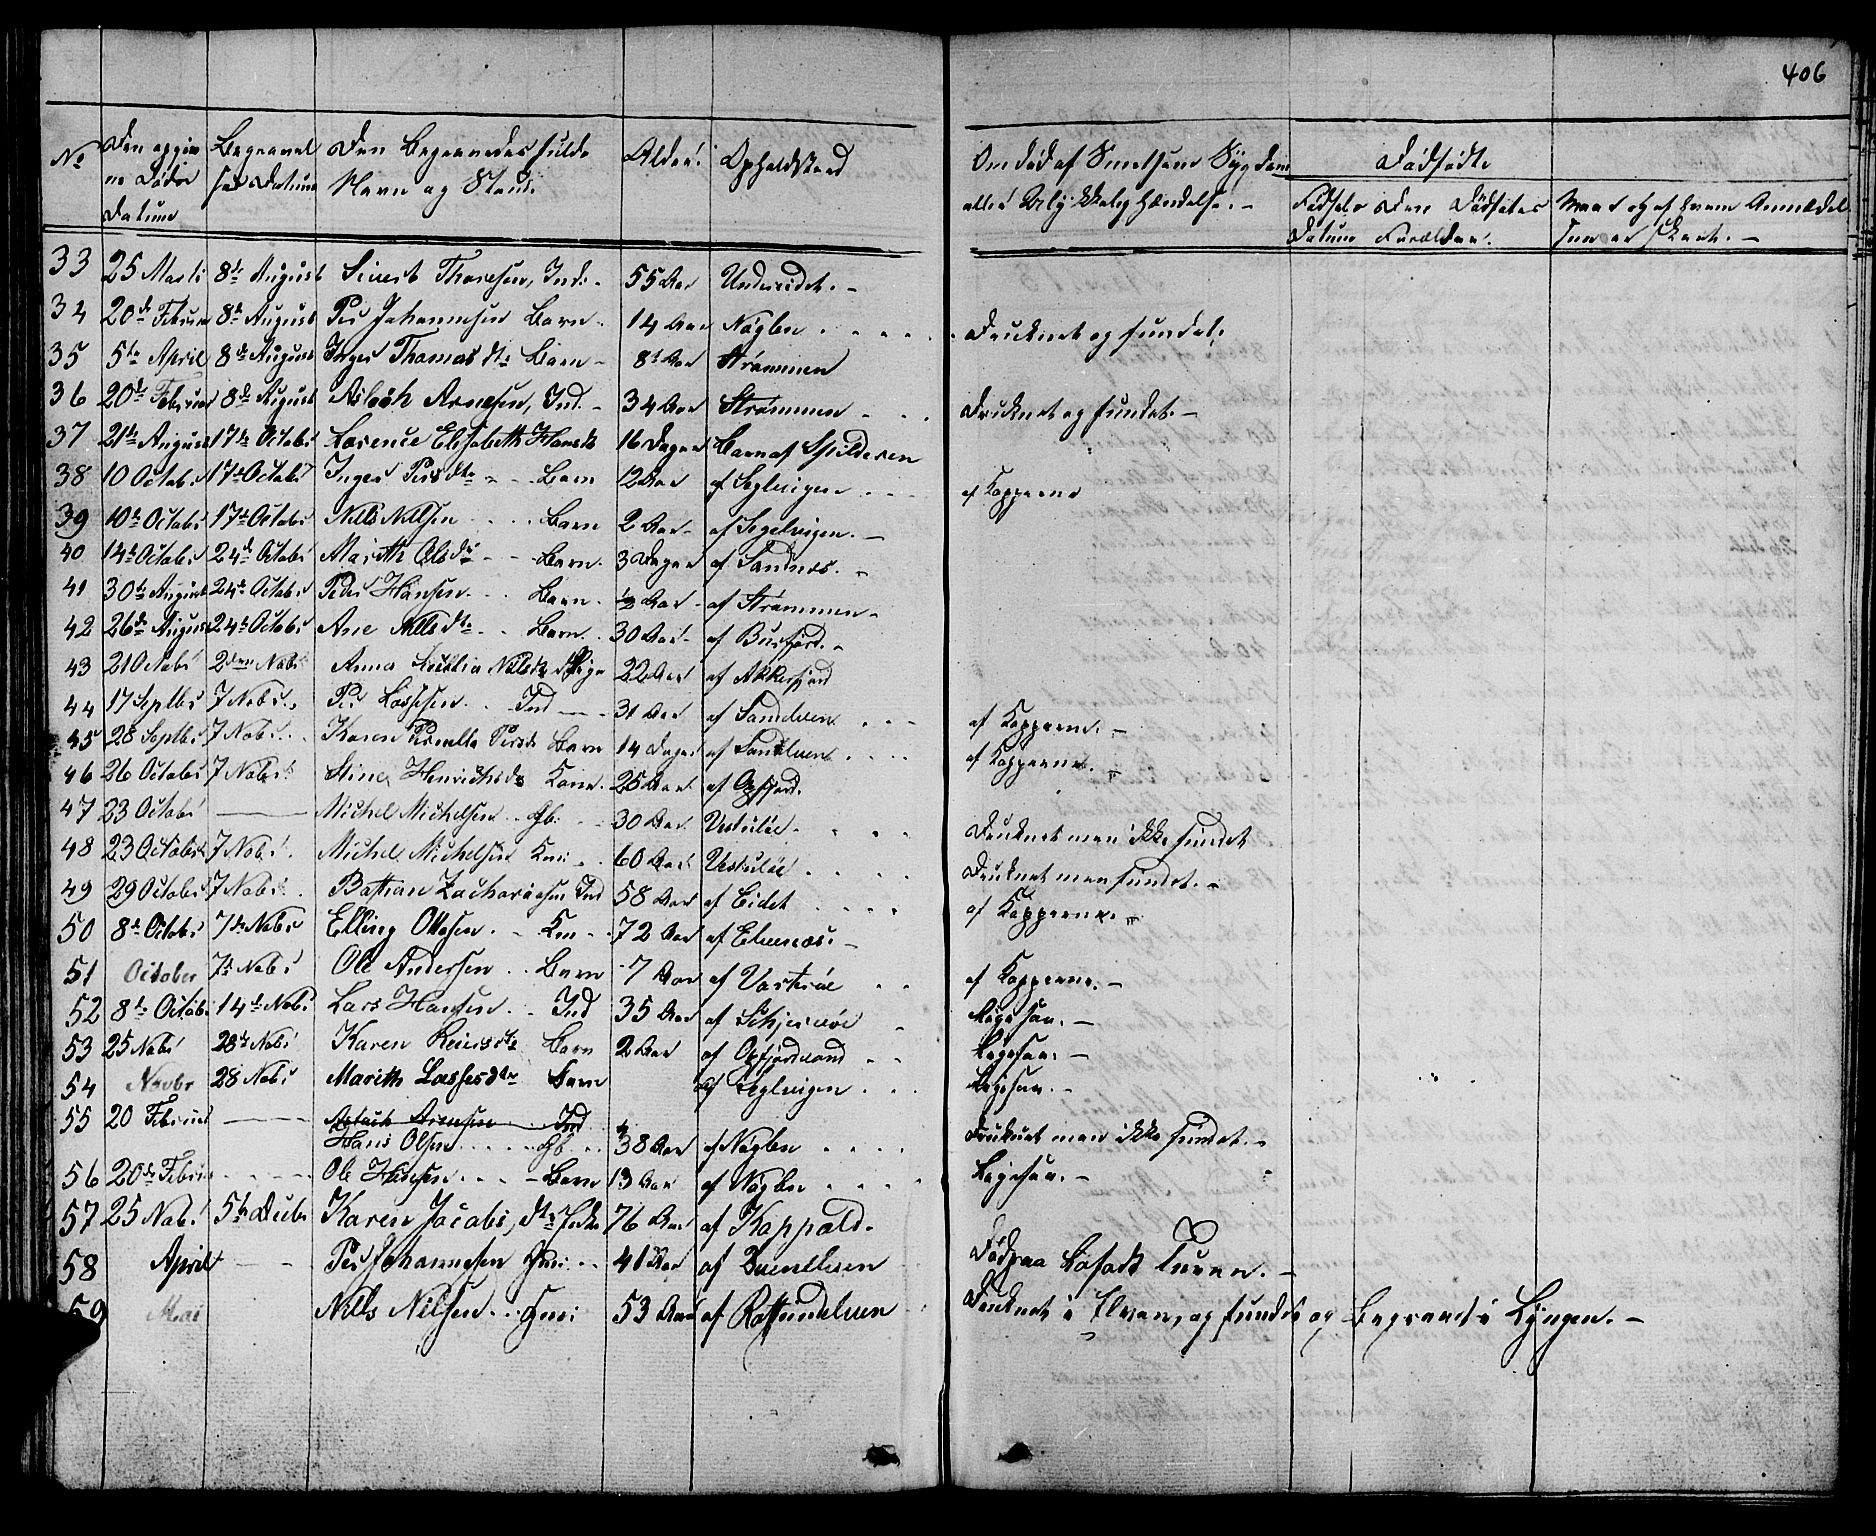 406
No Den opgivne Dødes Datum Begravelses Datum Den Begravedes fulde Navn og Stand. Alder. Opholdsted Om død af Smitsom Sygdom eller Ulykkelig Hændelse. - Dødfødte
Fødsels Datum Den Dødfødtes Forældre. Naar og af hvem Anmeldelsen er skeet. -
33 25 Marts 8de August Sivert Thoresen, Ind. - 55 Aar Undereidet. -
34 20de Februar 8de August Per Johannesen Barn - 14 Aar Nøglen Druknet og fundet.
35 5te April 8de August Inger Thomasdtr Barn - 8t Aar Strømmen
36 20de Februar 8de August Aslach Arnesen, Ind. - 34 Aar Strømmen - Druknet og fundet. -
37 21de August 17de Octobr Lorence Elisabeth Hansdtr 16 Dager Barn af Spilderen
38 10 Octobr 17de Octobr Inger Persdtr - - Barn 12 Aar af Seglvigen af Kopperne
39 10de Octobr 17de Octobr Nils Nilsen Barn 2 Aar - af Segelvigen. -
40 14de Octobr 24de Octobr Marith Olsdtr - - Barn. 3 Dager af Sandnes. -
41 30te August 24de Octobr Peder Hansen. Barn. ½ Aar - af Strømmen -
42 26de August 24de Octobr Ane Nilsdtr - Barn. 30 Aar - af Burfjord. -
43 21 Octobr 2den Nobr Anna Nilsdtr Pige 22 Aar af Akkerfjord
44 17 Septbr 7 Nobr. Per Lassesen. Ind - 31 Aar af Sandelven af Kopperne. -
45 28 Septbr 7 Nobr. Karen Pernille Persdtr Barn 14 Dager af Sandelven af Kopperne. -
46 26 Octobr 7 Nobr. Stine Henrichsdtr Kone. 25 Aar af Oxfjord.
47 23 Octobr - Michel Michelsen Gb. 30 Aar Vestuløe. Druknet men ikke fundet
48 23 Octobr 7 Nobr. Michel Michelsen 60 Aar Vestuløe Druknet men fundet. -
49 29 Octobr 7 Nobr. Bastian Zachariesen Ind 58 Aar af Eidet af Kopperne. -
50 8de Octobr 7de Nobr Elling Ottesen. - 72 Aar af Elvenæs. -
51 October 7de Nobr Ole Andersen Barn 7 Aar af Vorterøe af Kopperne. -
52 8de Octobr 14de Nobr Lars Hansen. Ind 35 Aar af Schjervøe Ligesaa. -
53 25 Nobr 28de Nobr Karen Reiersdtr Barn 2 Aar af Oxfjordvand Ligesaa. -
54 Novbr 28 Nobr Marith Lassesdtr Barn af Seglvigen Ligesaa. -
55 20 Februar - Aslach Arnesen Ind
Hans Olsen Gb 38 Aar af Nøglen Druknet men ikke fundet. -
56 20de Februar Ole Hansen - Barn 13 Aar af Nøglen Ligesaa. -
57 25 Nobr. 5te Decbr Karen Jacobsdtr 76 Aar af Koppald.
58 April Per Johannesen 41 Aar af Qvenelven Død paa Lofods Turen. -
59 Mai Nills Nilsen 53 Aar af Rottundelven Druknet i Elven, og fundet og Begravet i Lyngen. -